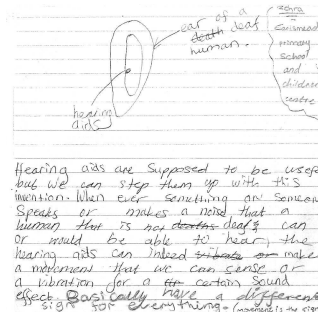 ear of a
death deaf
human.
zehra
primary
school
and
children
centre
hearing
aids
Hearing aids are supposed to be usef
but we can step them up with this
invention. When ever something or someon
speaks or makes a noise that a
human that is not deaths deaf can
or would be able to hear, the
hearing aids can indeed vibrate or make
a movement that we can sense or
a vibration for a certain sound
effect. Basically have a different
sign for everything. (movement is the sign